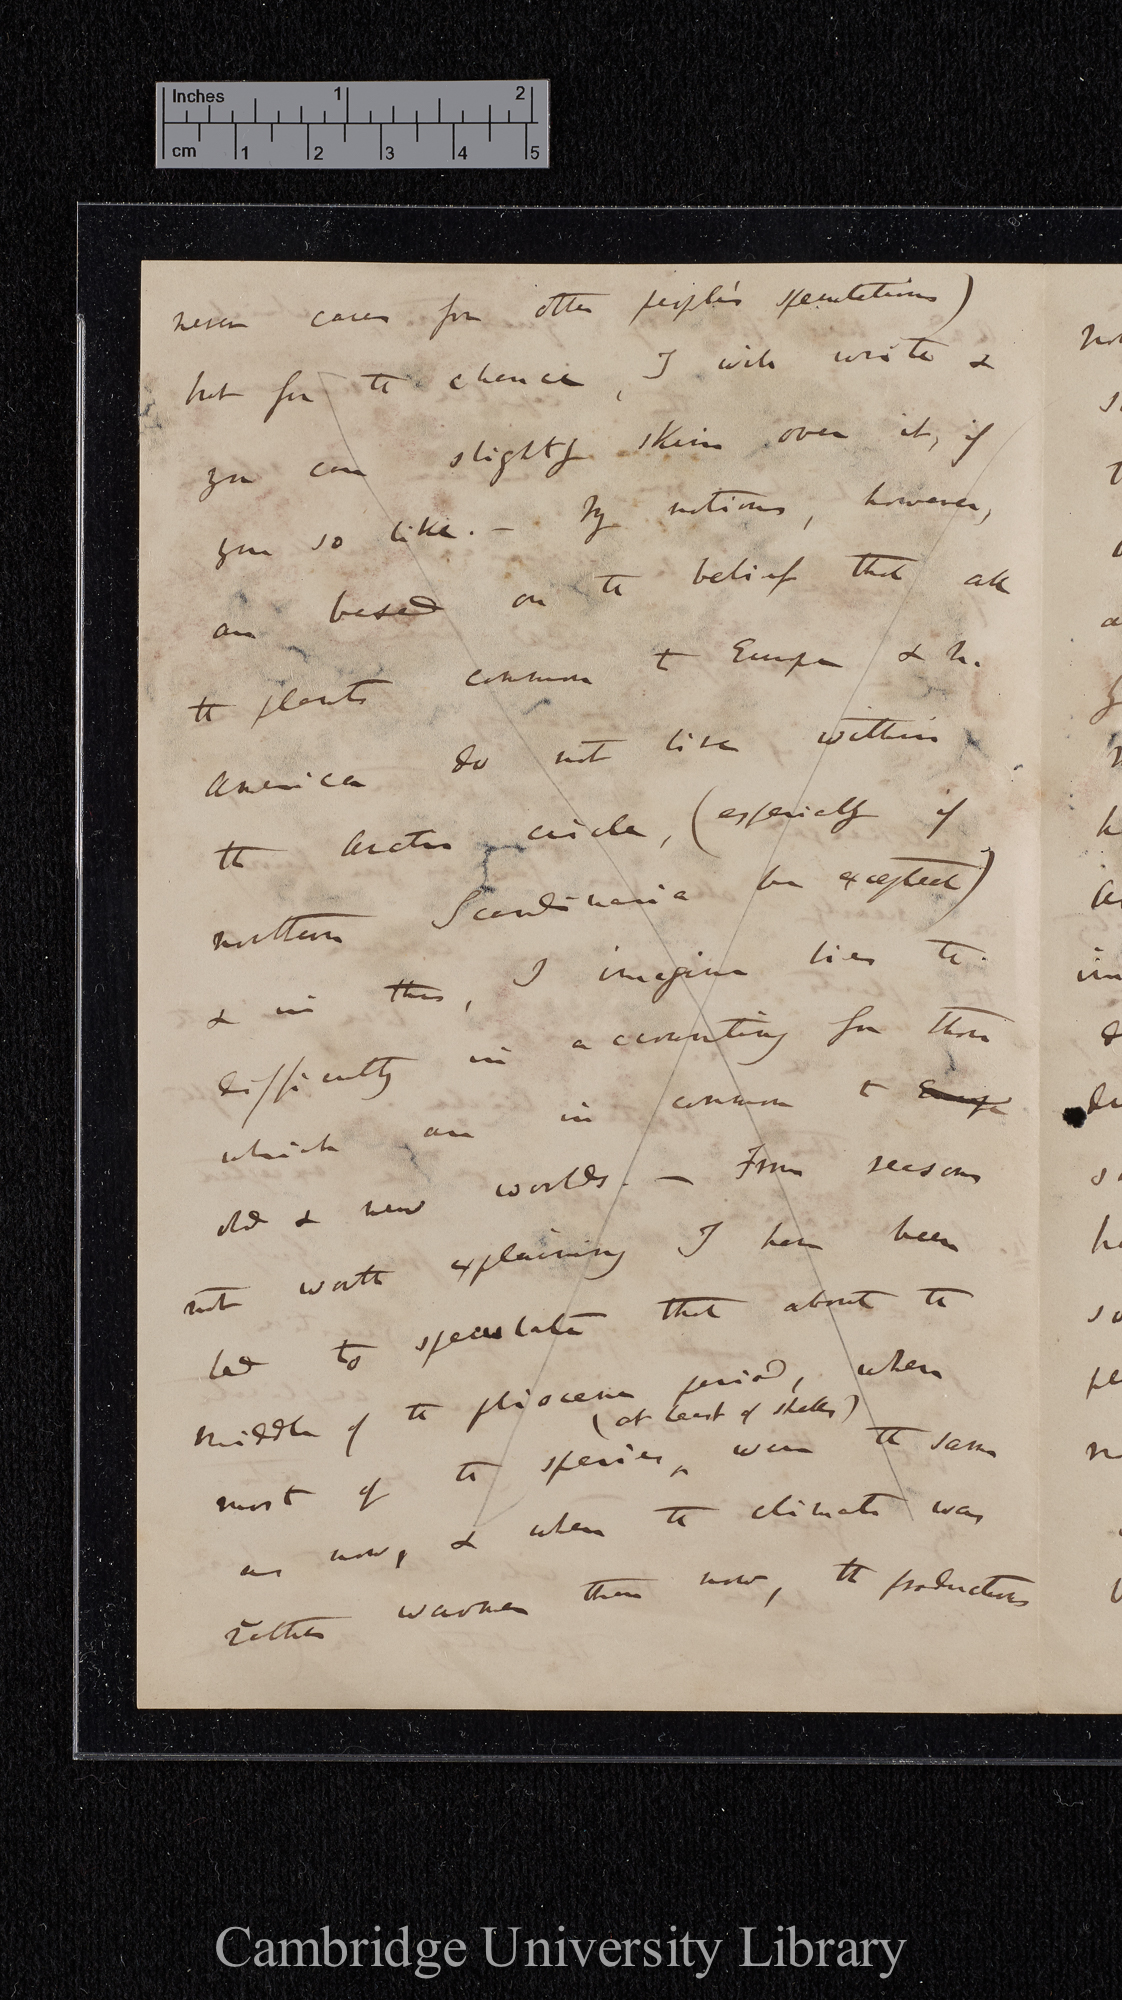 Inches 1 2
cm 1 2 3 4 5
never cares for other people's speculations)
but for the chance, I will write &
you can slightly skim over it, if
you so like. — My notions, however,
are based on the belief that all
the plants common to Europe & N.
America do not live within
the Arctic circle, (especially if
northern Scandinavia be excepted)
& in this, I imagine lies the
difficulty in accounting for those
which are in common to Europe
old & new worlds. — From reasons
not worth explaining I have been
led to speculate that about the
middle of the pliocene period, when
(at least of shells)
most of the species, were the same
as now, & when the climate was
rather warmer than now, the productions
Cambridge University Library